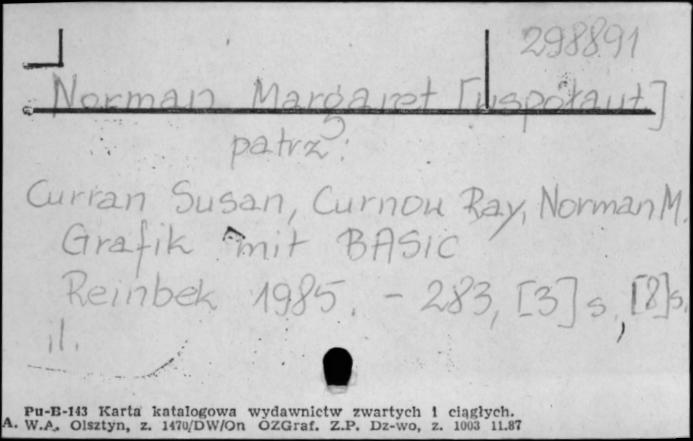 298891
Norman Margaret [współaut]
patrz:
Curran Susan, Curnow Ray, Norman M.
Grafik mit BASIC
Reinbek 1985. - 283, [3] s, [8] s.
il.
Pu-B-143 Karta katalogowa wydawnictw zwartych i ciągłych.
A. W.A. Olsztyn, z. 1470/DW/On OZGraf. Z.P. Dz-wo, z. 1003 11.87